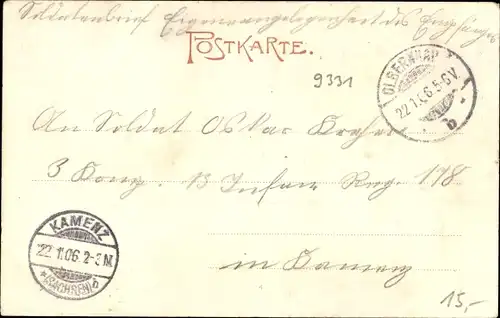 Soldatenbrief Eigene Angelegenheit des Empfängers
POSTKARTE.
9331
OLBERNHAU
22.1.06.5-6V.
b
An Soldat Oskar
3 Komp. 13 Infan Reg. 178
in Kamenz
KAMENZ
22.1.06.2-3N.
*(SACHSEN)b
15,-